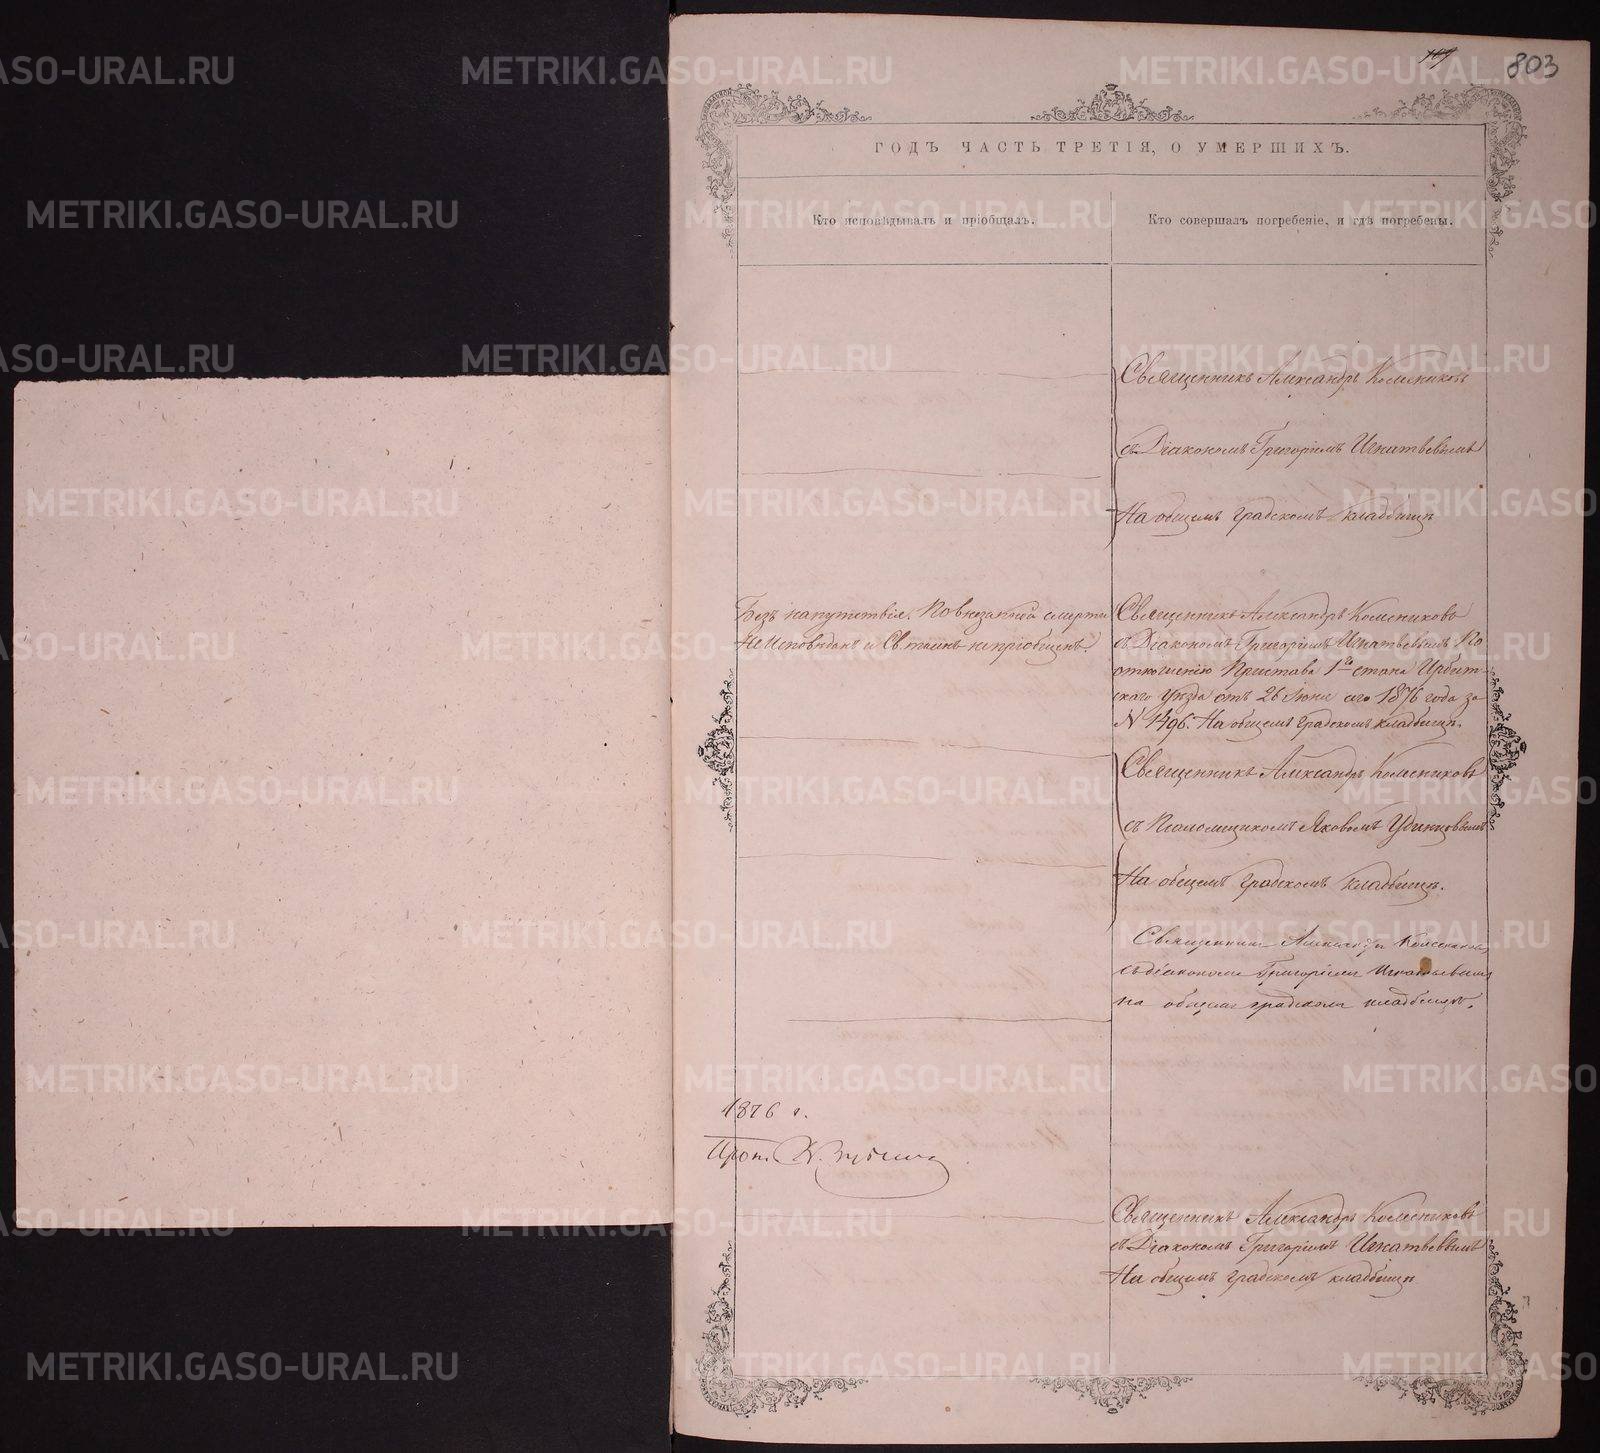 803
ГОДЪ ЧАСТЬ ТРЕТІЯ, О УМЕРШИХЪ.
Кто исповѣдывалъ и пріобщалъ.
Кто совершалъ погребеніе, и гдѣ погребены.
Священникъ Александръ Колесниковъ
съ Діакономъ Григоріемъ Игнатьевымъ
На общемъ градскомъ кладбищѣ
Безъ напутствія. По внезапной смерти
Не исповѣданъ и Св. таинъ непріобщенъ.
Священникъ Александръ Колесниковъ
съ Діакономъ Григоріемъ Игнатьевымъ По
отношенію Пристава 1го стана Ирбит-
скаго Уѣзда отъ 26 Іюня сего 1876 года за
N 1496. На общемъ градскомъ кладбищѣ.
Священникъ Александръ Колесниковъ
съ Псаломщикомъ Яковомъ Удинцовымъ
На общемъ градскомъ кладбищѣ.
Священникъ Александръ Колесниковъ
съ діакономъ Григоріемъ Игнатьевымъ
на общемъ градскомъ кладбищѣ.
1876 г.
Прот.
Священникъ Александръ Колесниковъ
съ Діакономъ Григоріемъ Игнатьевымъ
На общемъ градскомъ кладбищѣ
METRIKI.GASO-URAL.RU